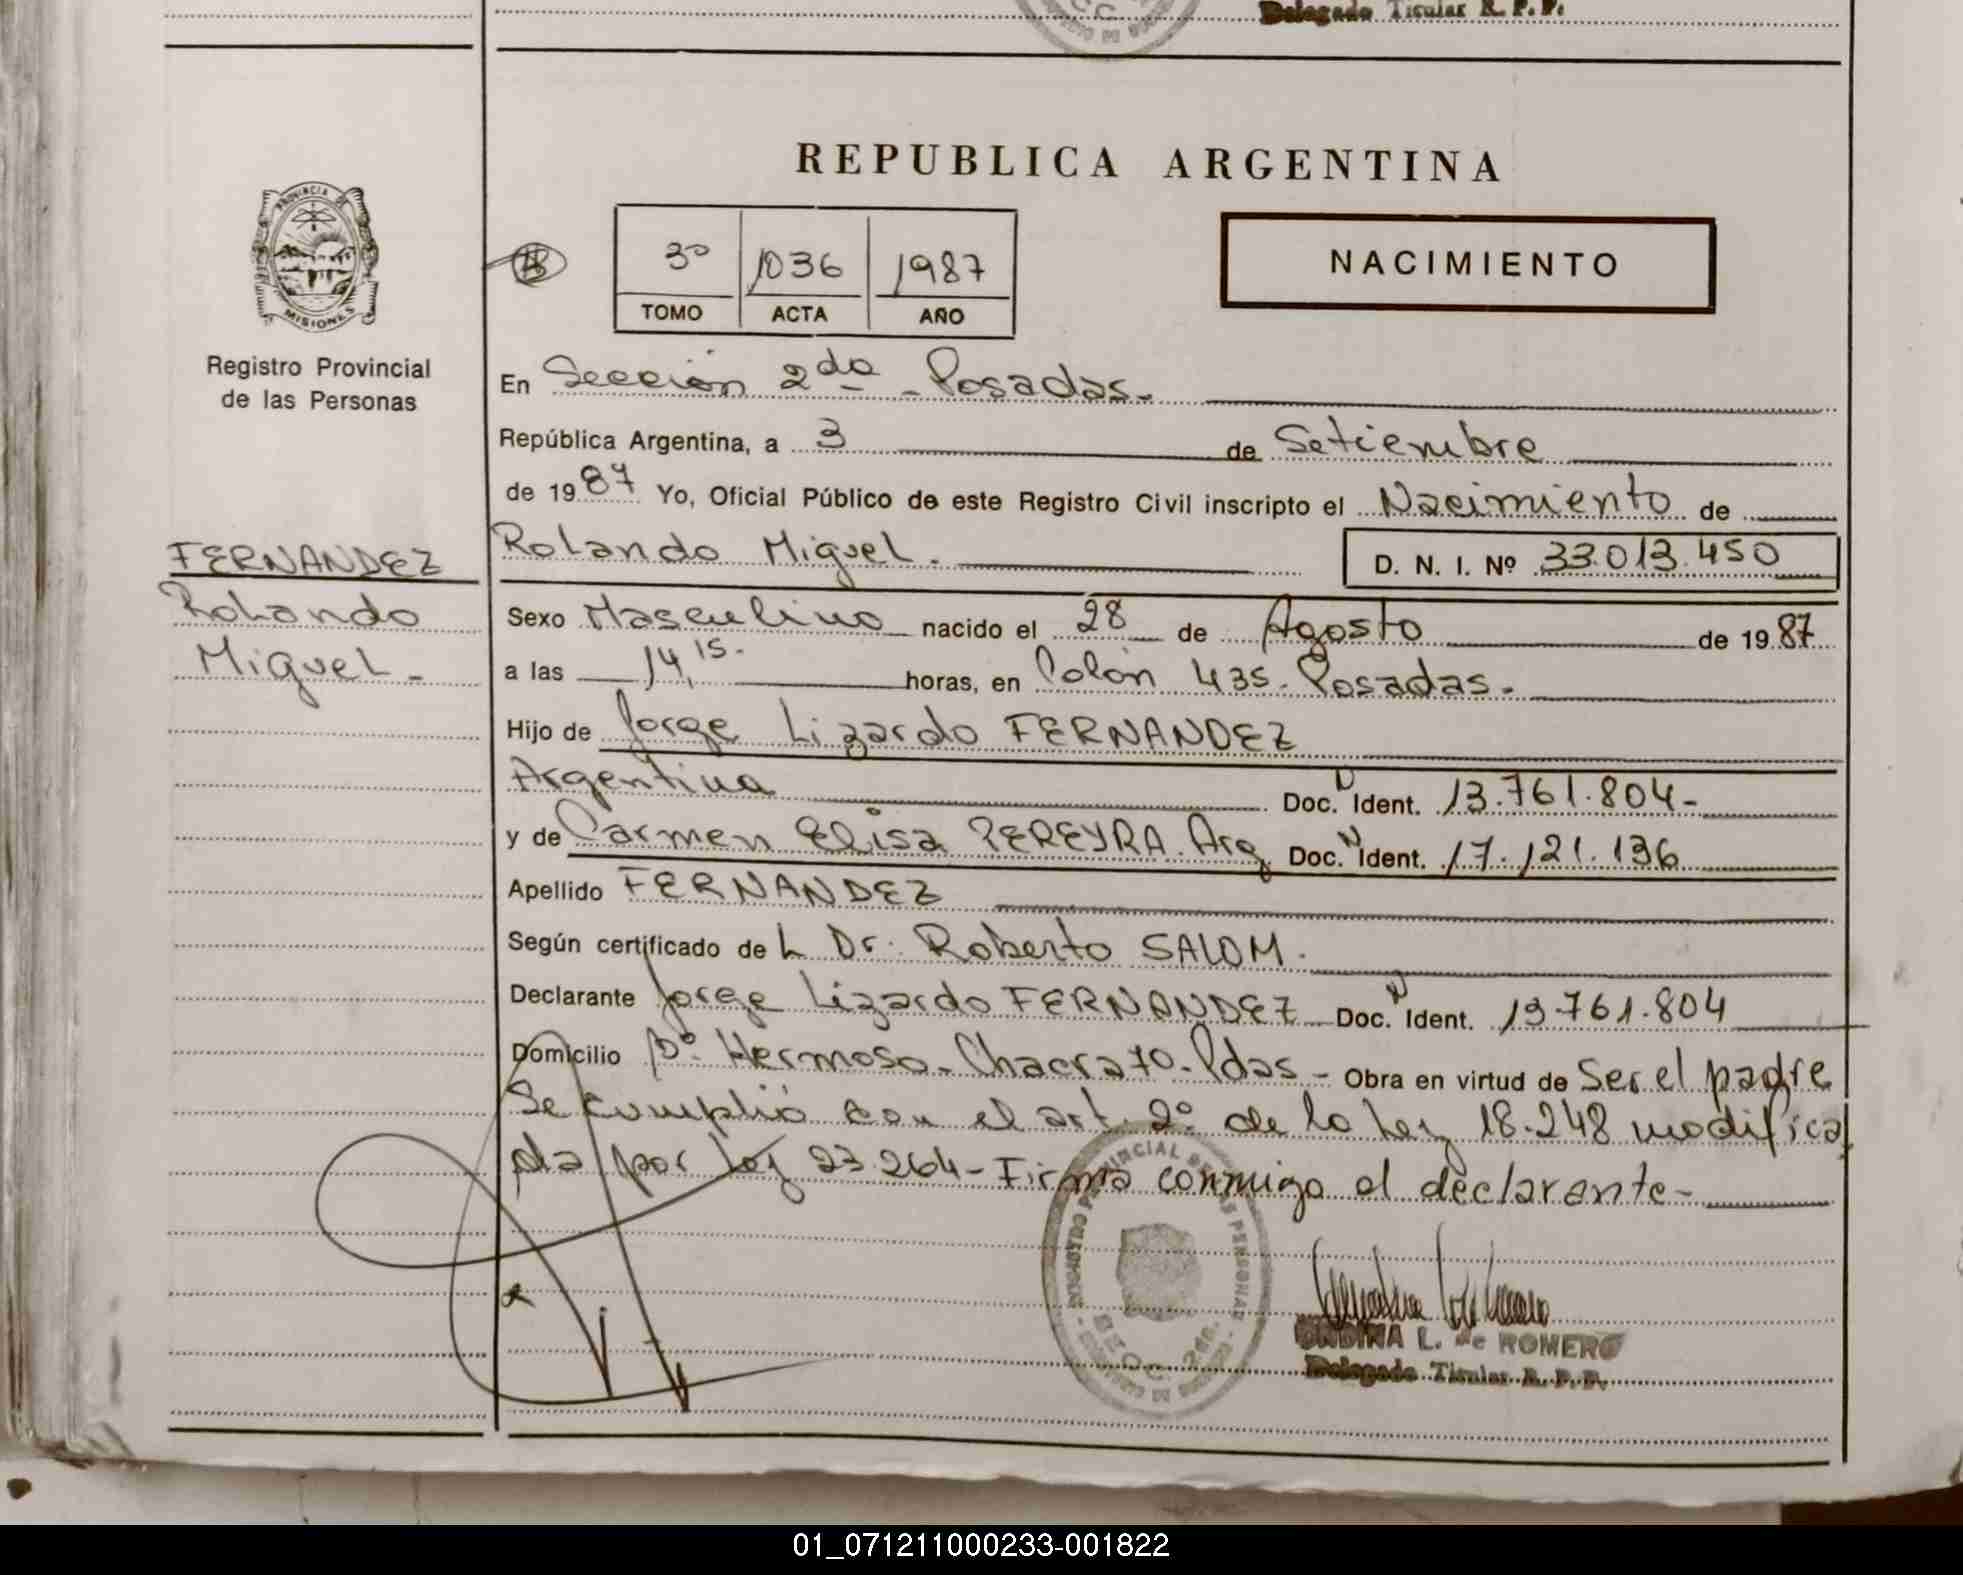 Delegado Titular R. P. P.
REPUBLICA ARGENTINA
PROVINCIA DE
MISIONES
Registro Provincial
de las Personas
3º 1036 1987
TOMO ACTA AÑO
NACIMIENTO
En Sección 2da - Posadas.-
República Argentina, a 3 de Setiembre
de 1987 Yo, Oficial Público de este Registro Civil inscripto el Nacimiento de
FERNANDEZ
Rolando
Miguel -
Rolando Miguel.
D. N. I. Nº 33.013.450
Sexo Masculino nacido el 28 de Agosto de 1987
a las 14,15. horas, en Colón 435. Posadas.-
Hijo de Jorge Lizardo FERNANDEZ
Argentina Doc. N Ident. 13.761.804-
y de Carmen Elisa PEREYRA. Arg. Doc. N Ident. 17.121.136
Apellido FERNANDEZ
Según certificado de L Dr. Roberto SALOM.
Declarante Jorge Lizardo FERNANDEZ Doc. N Ident. 13.761.804
Domicilio Pº Hermoso - Chacra 70 - Pdas - Obra en virtud de Ser el padre
Se cumplió con el art. 2º de la ley 18.248 modifica
da por ley 23.264 - Firma conmigo el declarante-
REGISTRO PROVINCIAL DE LAS PERSONAS
SECC. 2da.
ONDINA L. de ROMERO
Delegado Titular R. P. P.
01_071211000233-001822